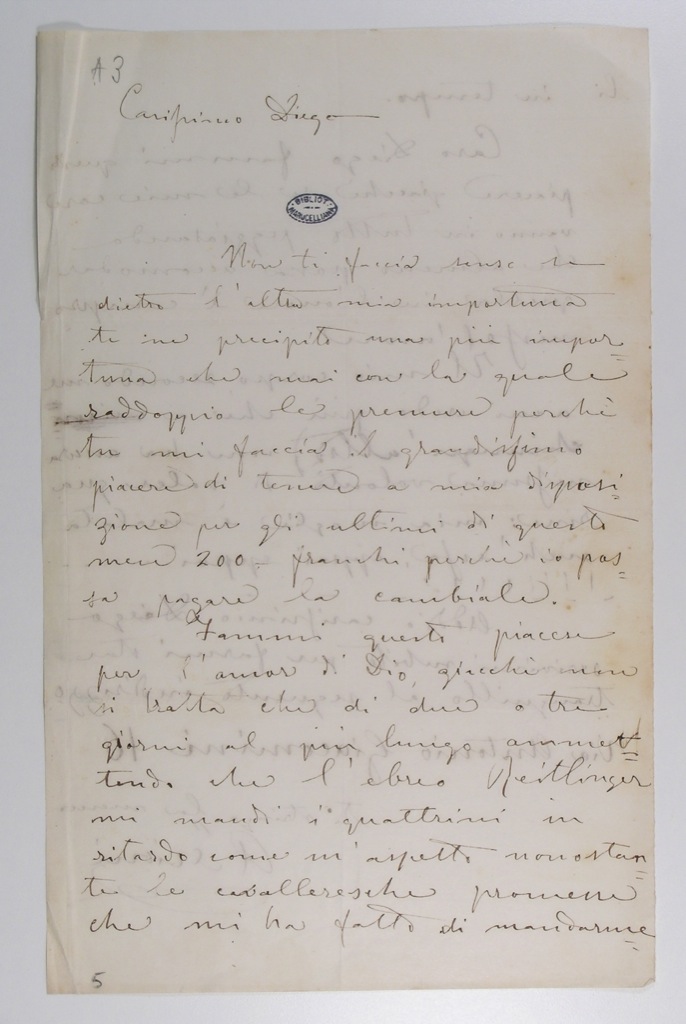 A3
Carissimo Diego
BIBLIOT.
MARUCELLIANA
Non ti faccia senso se
dietro l'altra mia importuna
te ne precipito una più impor=
tuna che mai con la quale
raddoppio le premure perchè
tu mi faccia il grandissimo
piacere di tenere a mia disposi=
zione per gli ultimi di questo
mese 200 = franchi perchè io pos=
sa pagare la cambiale.
Fammi questo piacere
per l'amor di Dio, giacchè non
si tratta che di due o tre
giorni al più lungo ammet=
tendo che l'ebreo Reitlinger
mi mandi i quattrini in
ritardo come m'aspetto nonostan=
te le cavalleresche promesse
che mi ha fatto di mandarme=
5